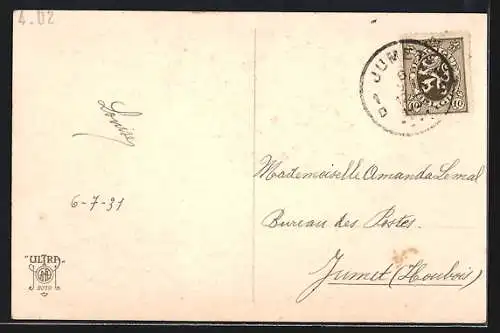 4.02
JUMET
10 10
Louisey
6-7-31
Mademoiselle Amanda Lemal
Bureau des Postes.
Jumet (Houbois)
"ULTRA"
2070